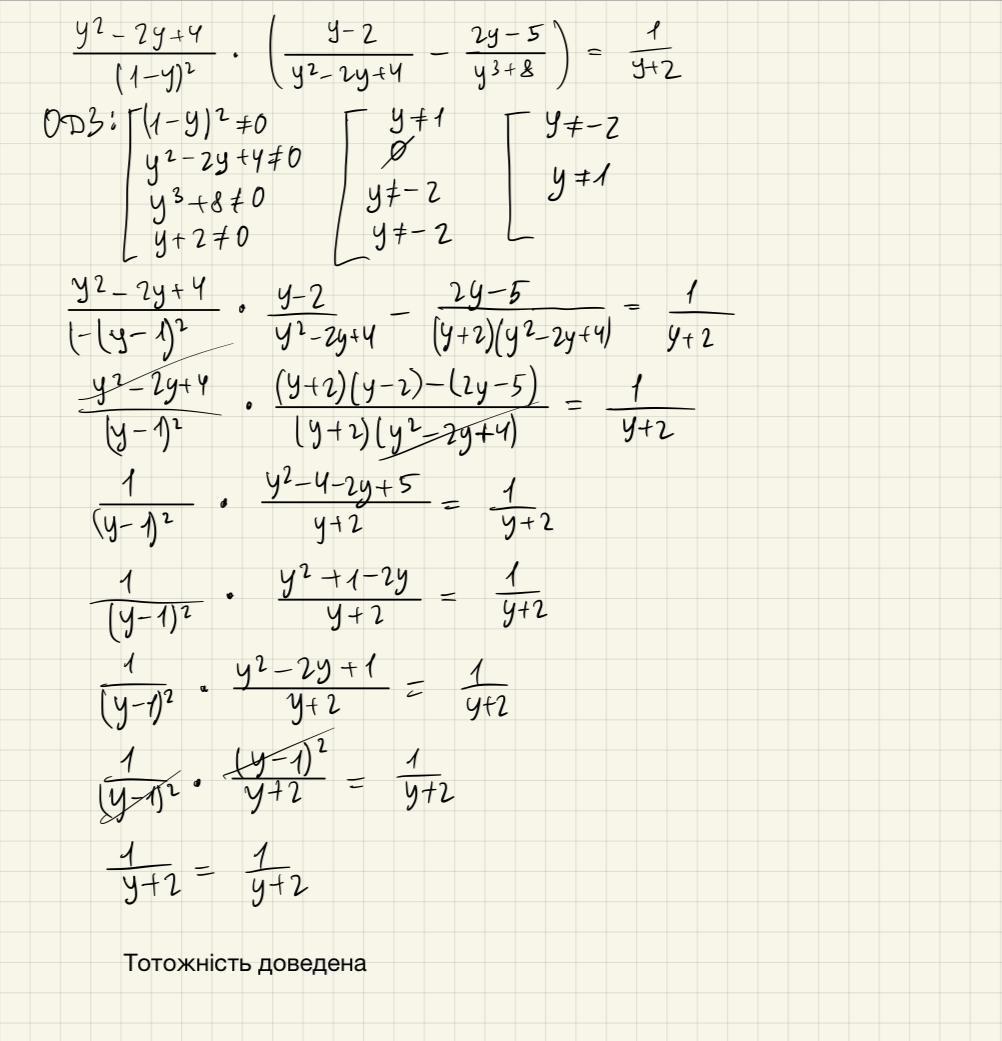 (y² - 2y + 4)/(1 - y)² · ((y - 2)/(y² - 2y + 4) - (2y - 5)/(y³ + 8)) = 1/(y + 2)
ОДЗ: [ (1 - y)² ≠ 0 [ y ≠ 1 [ y ≠ -2
y² - 2y + 4 ≠ 0 ∅ y ≠ 1
y³ + 8 ≠ 0 y ≠ -2
y + 2 ≠ 0 y ≠ -2
(y² - 2y + 4)/(-(y - 1)² · (y - 2)/(y² - 2y + 4) - (2y - 5)/((y + 2)(y² - 2y + 4)) = 1/(y + 2)
(y² - 2y + 4)/(y - 1)² · ((y + 2)(y - 2) - (2y - 5))/((y + 2)(y² - 2y + 4)) = 1/(y + 2)
1/(y - 1)² · (y² - 4 - 2y + 5)/(y + 2) = 1/(y + 2)
1/(y - 1)² · (y² + 1 - 2y)/(y + 2) = 1/(y + 2)
1/(y - 1)² · (y² - 2y + 1)/(y + 2) = 1/(y + 2)
1/(y - 1)² · (y - 1)²/(y + 2) = 1/(y + 2)
1/(y + 2) = 1/(y + 2)
Тотожність доведена